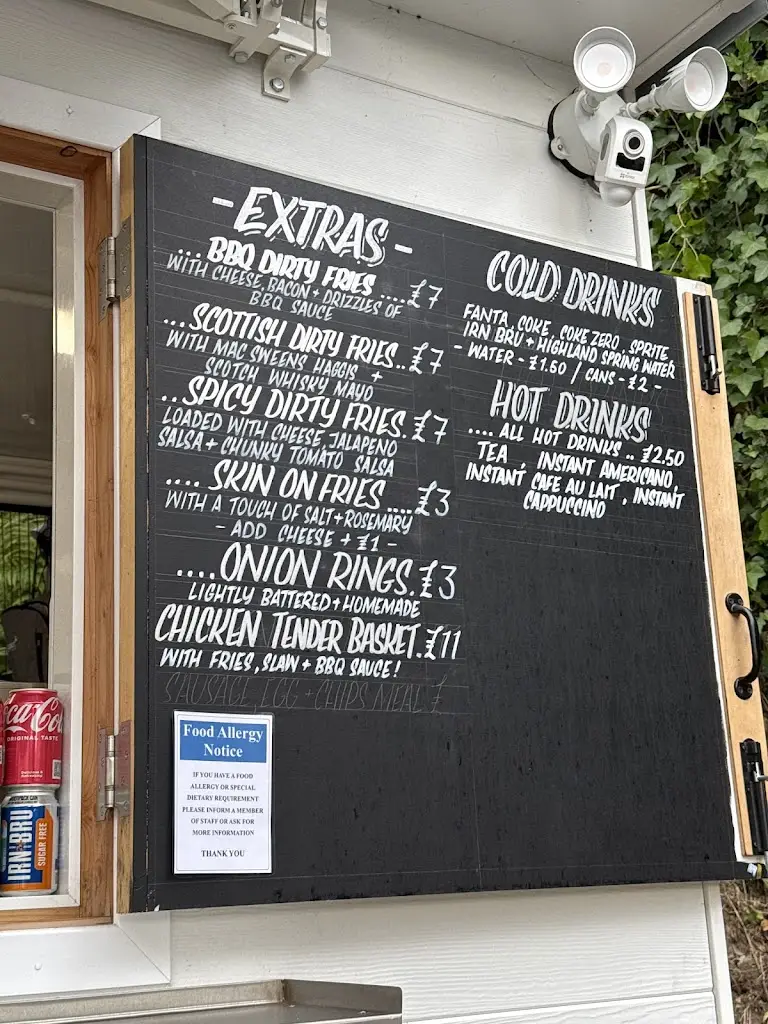 - EXTRAS -
... BBQ DIRTY FRIES .... £7
WITH CHEESE, BACON + DRIZZLES OF
BBQ SAUCE
... SCOTTISH DIRTY FRIES .. £7
WITH MAC SWEENS HAGGIS +
SCOTCH WHISKY MAYO
.. SPICY DIRTY FRIES. £7
LOADED WITH CHEESE, JALAPENO
SALSA + CHUNKY TOMATO SALSA
.... SKIN ON FRIES .... £3
WITH A TOUCH OF SALT + ROSEMARY
- ADD CHEESE + £1 -
.... ONION RINGS. £3
LIGHTLY BATTERED + HOMEMADE
CHICKEN TENDER BASKET. £11
WITH FRIES, SLAW + BBQ SAUCE!
SAUSAGE, EGG + CHIPS MEAL £
COLD DRINKS
FANTA, COKE, COKE ZERO, SPRITE,
IRN BRU + HIGHLAND SPRING WATER
- WATER - £1.60 / CANS - £2 -
HOT DRINKS
.... ALL HOT DRINKS .. £2.50
TEA, INSTANT AMERICANO,
INSTANT CAFE AU LAIT, INSTANT
CAPPUCCINO
Food Allergy
Notice
IF YOU HAVE A FOOD
ALLERGY OR SPECIAL
DIETARY REQUIREMENT
PLEASE INFORM A MEMBER
OF STAFF OR ASK FOR
MORE INFORMATION
THANK YOU
ca-Co
ORIGINAL TASTE
IRN-BRU
SUGAR FREE